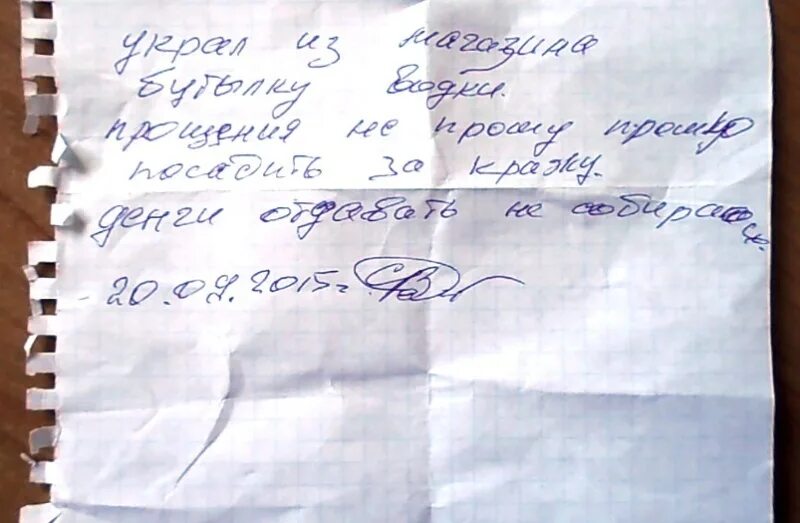 украл из магазина
бутылку водки.
прощения не прошу прошу
посадить за кражу.
денги отдавать не собираюсь.
20.09.2015г